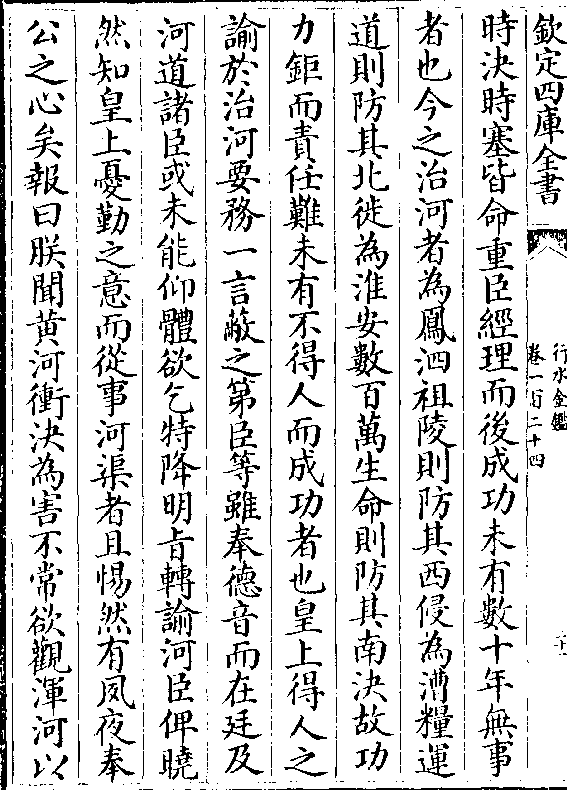 欽定四庫全書
行水金鑑
卷一百二十四
時決時塞皆命重臣經理而後成功未有數十年無事
者也今之治河者為鳳泗祖陵則防其西侵為漕糧運
道則防其北徙為淮安數百萬生命則防其南決故功
力鉅而責任難未有不得人而成功者也皇上得人之
諭於治河要務一言蔽之第臣等雖奉德音而在廷及
河道諸臣或未能仰體欲乞特降明旨轉諭河臣俾曉
然知皇上憂勤之意而從事河渠者且惕然有夙夜奉
公之心矣報曰朕聞黃河衝決為害不常欲觀渾河以